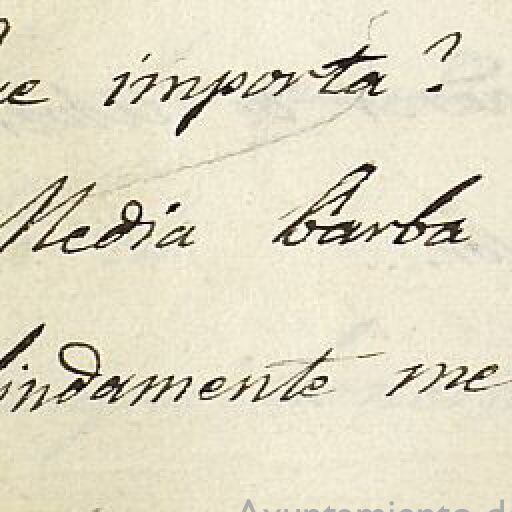 ue importa?
Media barba
lindamente me
Ayuntamiento d